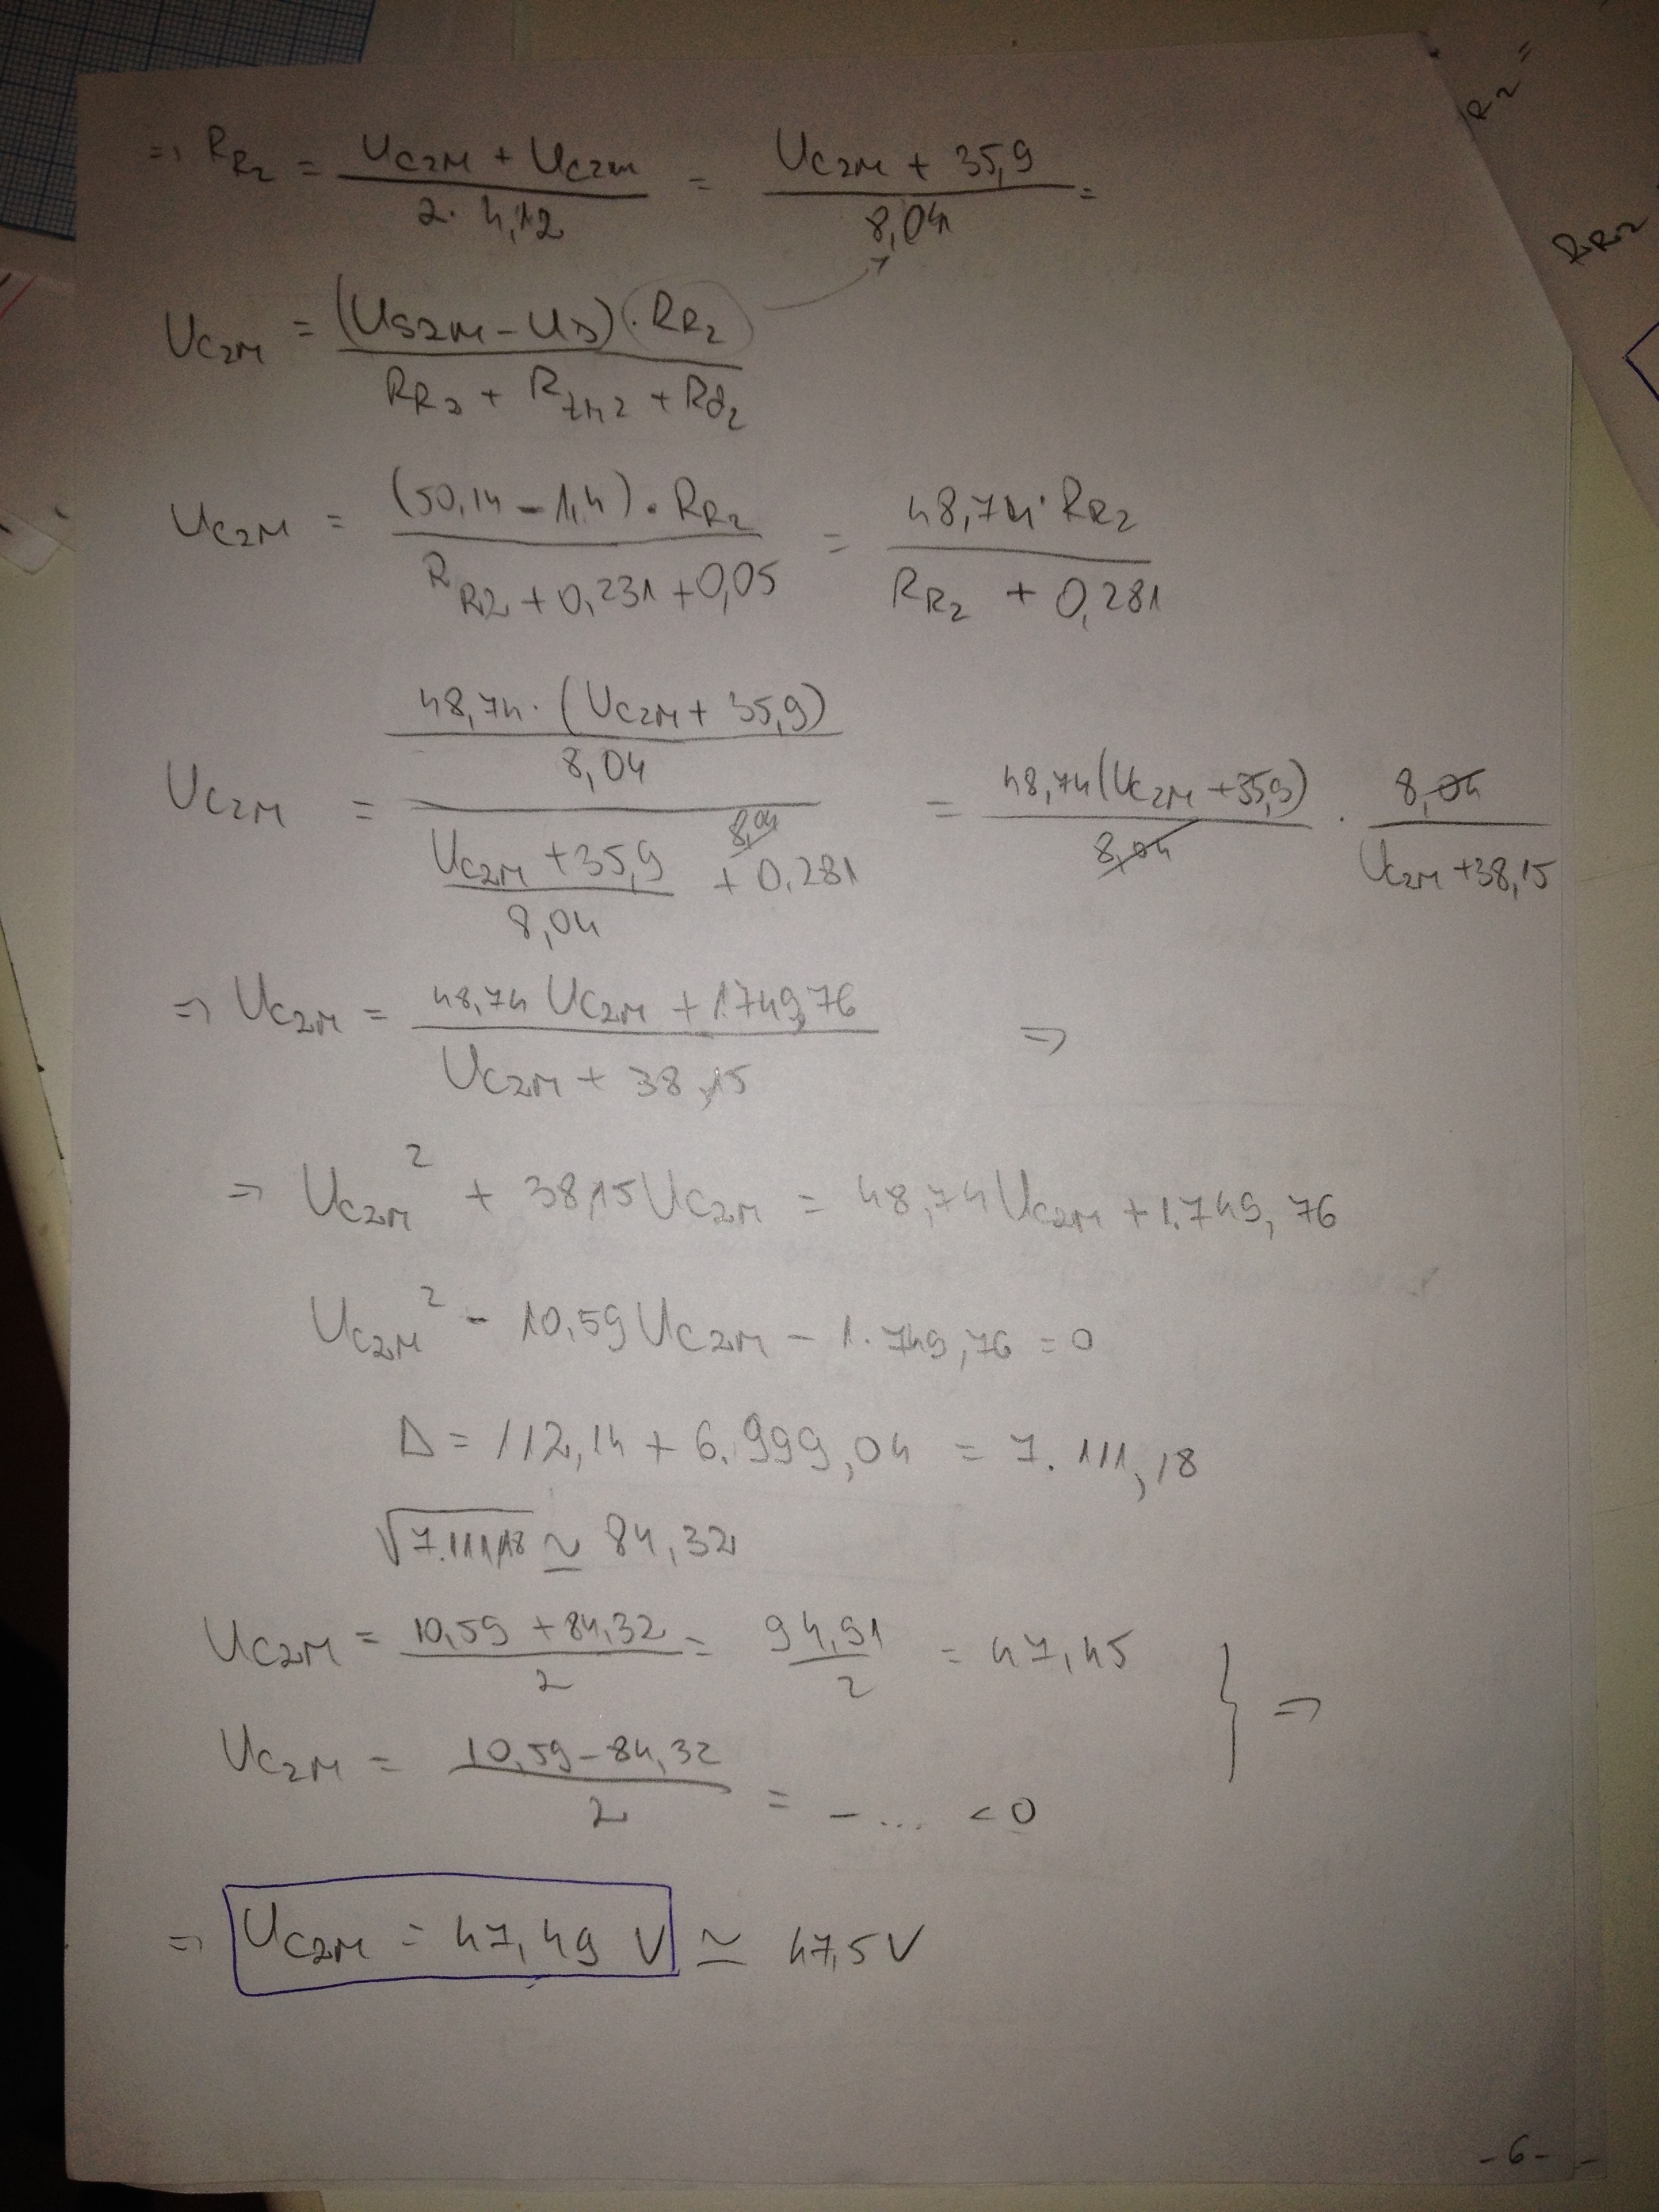 => R_R2 = (U_C2M + U_C2m) / (2 · 4,12) = (U_C2M + 35,9) / 8,04 =
U_C2M = (U_S2M - U_D) · R_R2 / (R_R2 + R_tn2 + R_d2)
U_C2M = (50,14 - 1,4) · R_R2 / (R_R2 + 0,231 + 0,05) = 48,74 · R_R2 / (R_R2 + 0,281)
U_C2M = (48,74 · (U_C2M + 35,9) / 8,04) / ((U_C2M + 35,9) / 8,04 + 0,281) 8,04 = 48,74 (U_C2M + 35,9) / 8,04 · 8,04 / (U_C2M + 38,15)
=> U_C2M = (48,74 U_C2M + 1749,76) / (U_C2M + 38,15) =>
=> U_C2M² + 38,15 U_C2M = 48,74 U_C2M + 1.749,76
U_C2M² - 10,59 U_C2M - 1.749,76 = 0
Δ = 112,14 + 6.999,04 = 7.111,18
√7.111,18 ≃ 84,32
U_C2M = (10,59 + 84,32) / 2 = 94,91 / 2 = 47,45
U_C2M = (10,59 - 84,32) / 2 = - ... < 0 } =>
=> U_C2M = 47,49 V ≃ 47,5 V
- 6 -
R2 =
R_R2